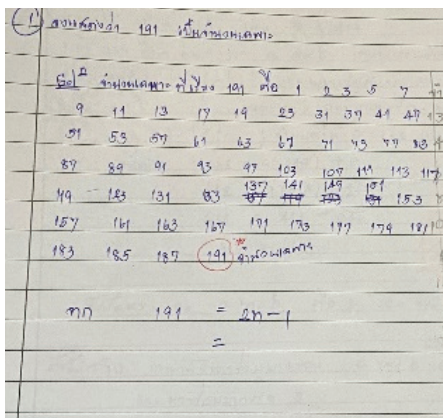 1 จงแสดงว่า 191 เป็นจำนวนเฉพาะ
จำนวนเฉพาะ ที่ 191 คือ 1 2 3 5 7
9 11 13 17 19 23 31 37 41 47
51 53 57 61 63 67 71 73 77 83
87 89 91 93 97 103 107 111 113 117
137 141 149 151
119 123 131 133 153
157 161 163 167 171 173 177 179 181
183 185 187 191 จำนวนเฉพาะ
จาก 191 = 2n-1
=